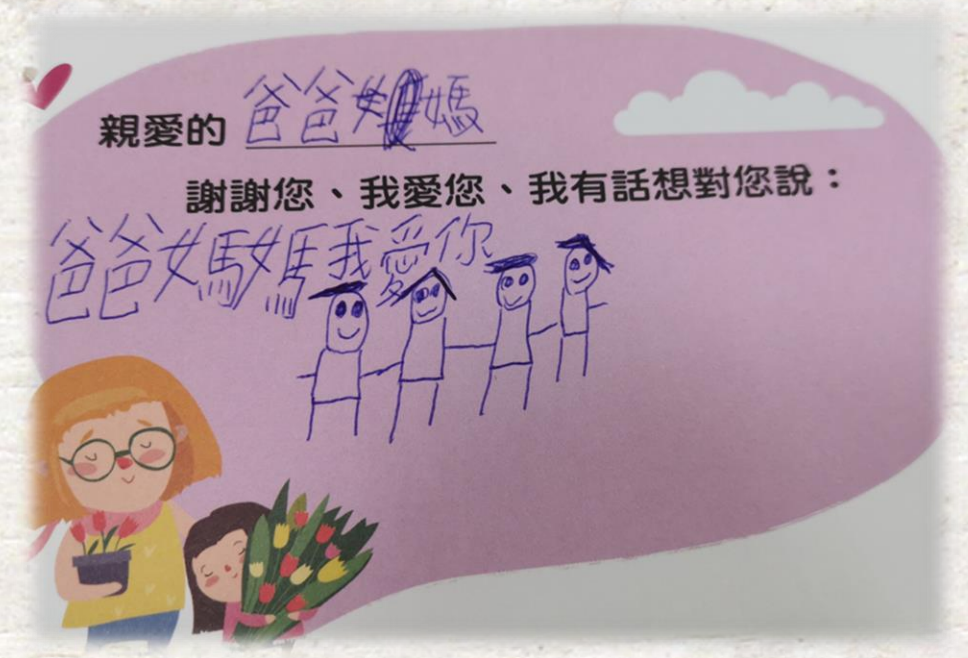 親愛的 爸爸媽媽
謝謝您、我愛您、我有話想對您說：
爸爸媽媽我愛你